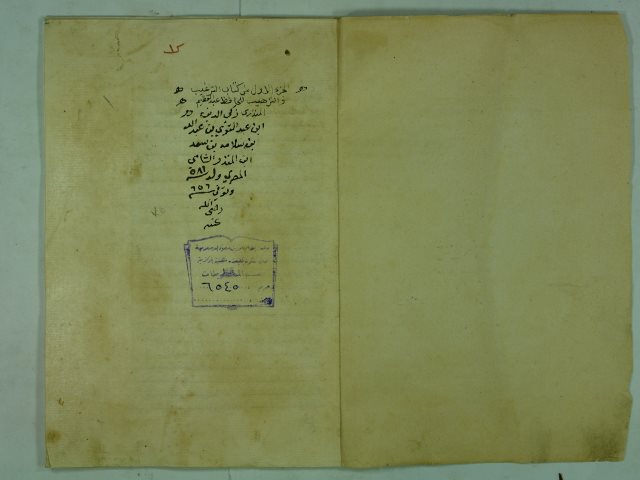 الجزء الاول من كتاب الترغيب
والترهيب للحافظ عبد العظيم
المنذري زكي الدين
ابن عبد القوي بن عبد الله
بن سلامه بن سعد
ابن المنذر الشامي
المصري ولد سنة ٥٨١
وتوفي سنة ٦٥٦
رضي الله
عنه
المخطوطات
٦٥٤٥